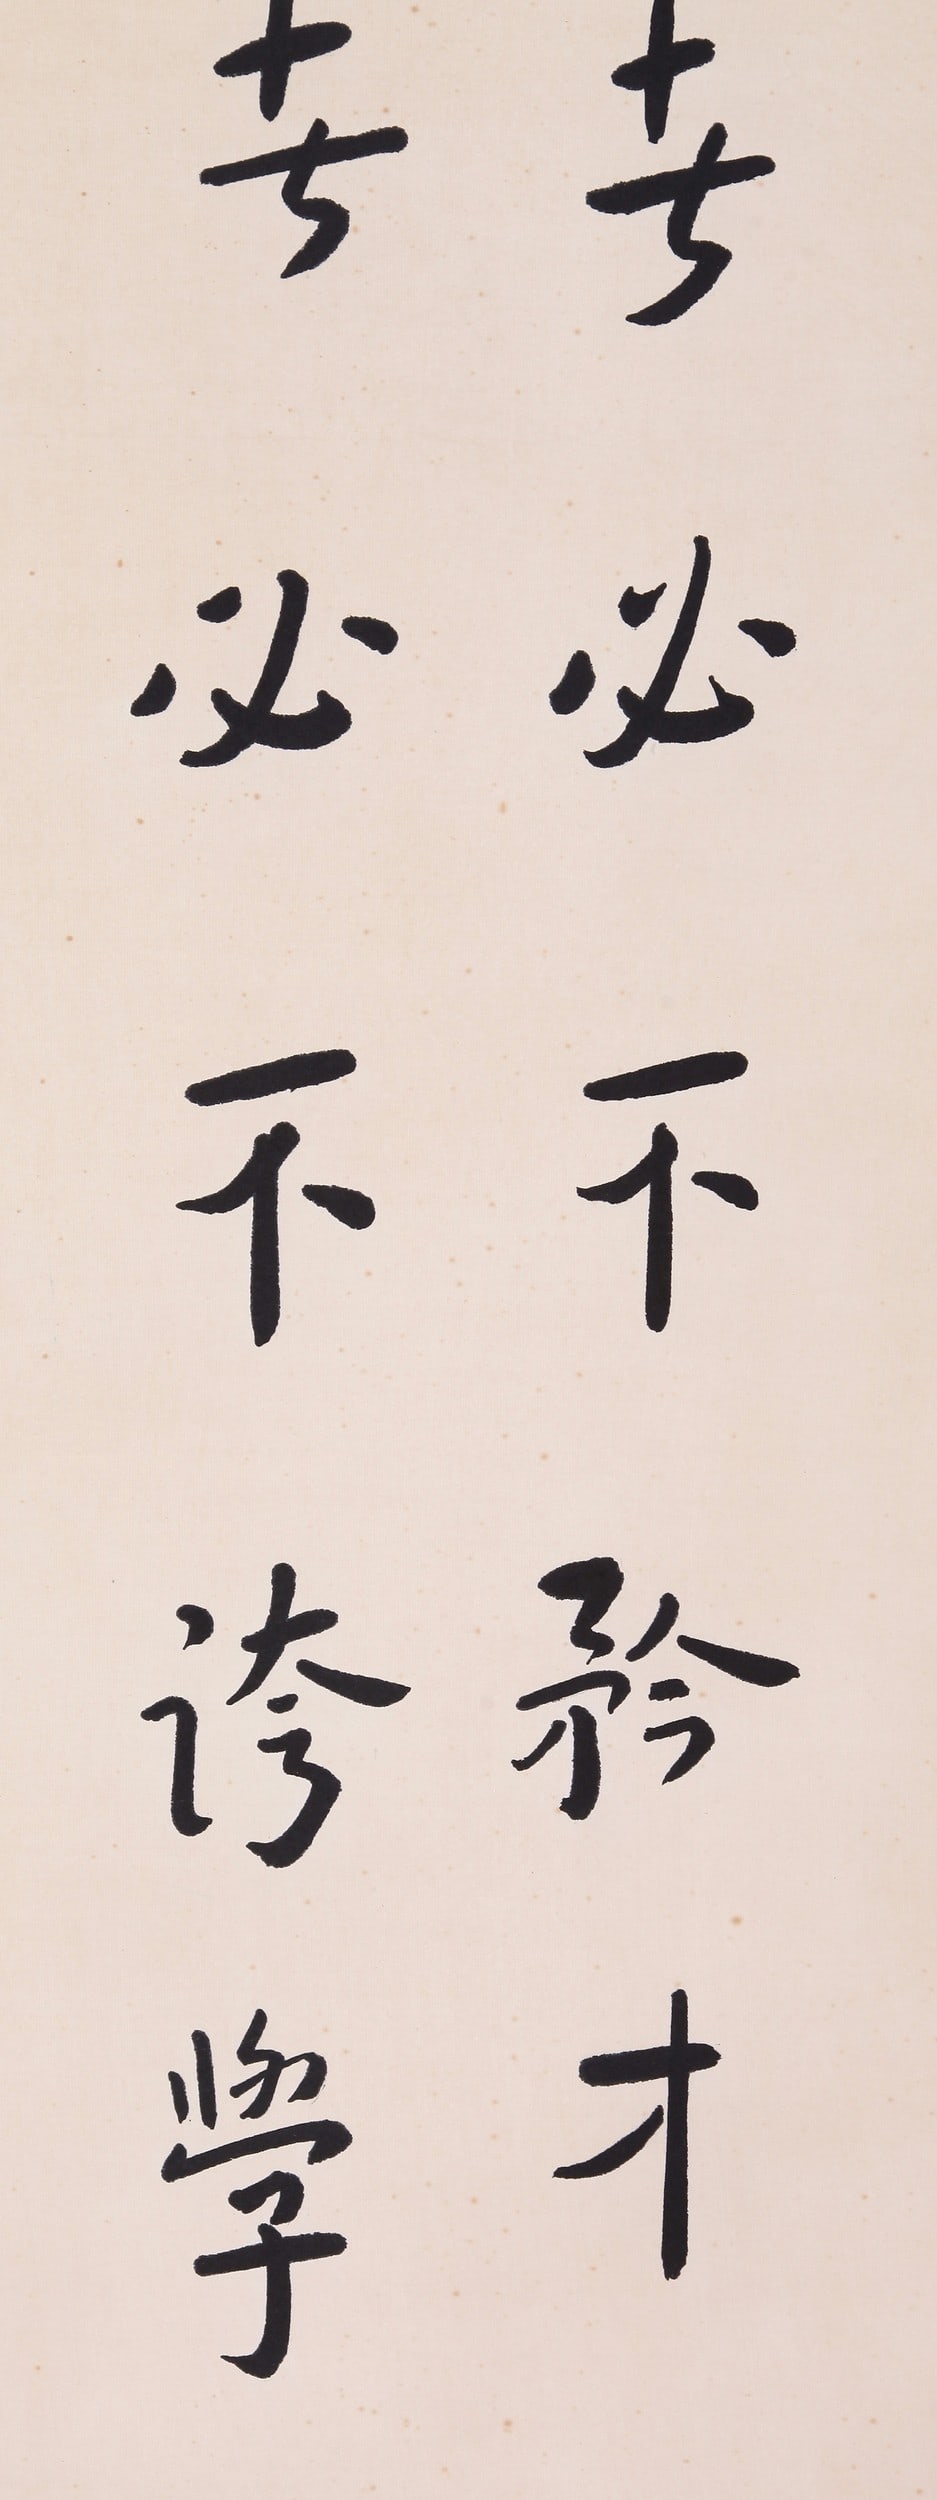 者必不矜才
者必不誇學